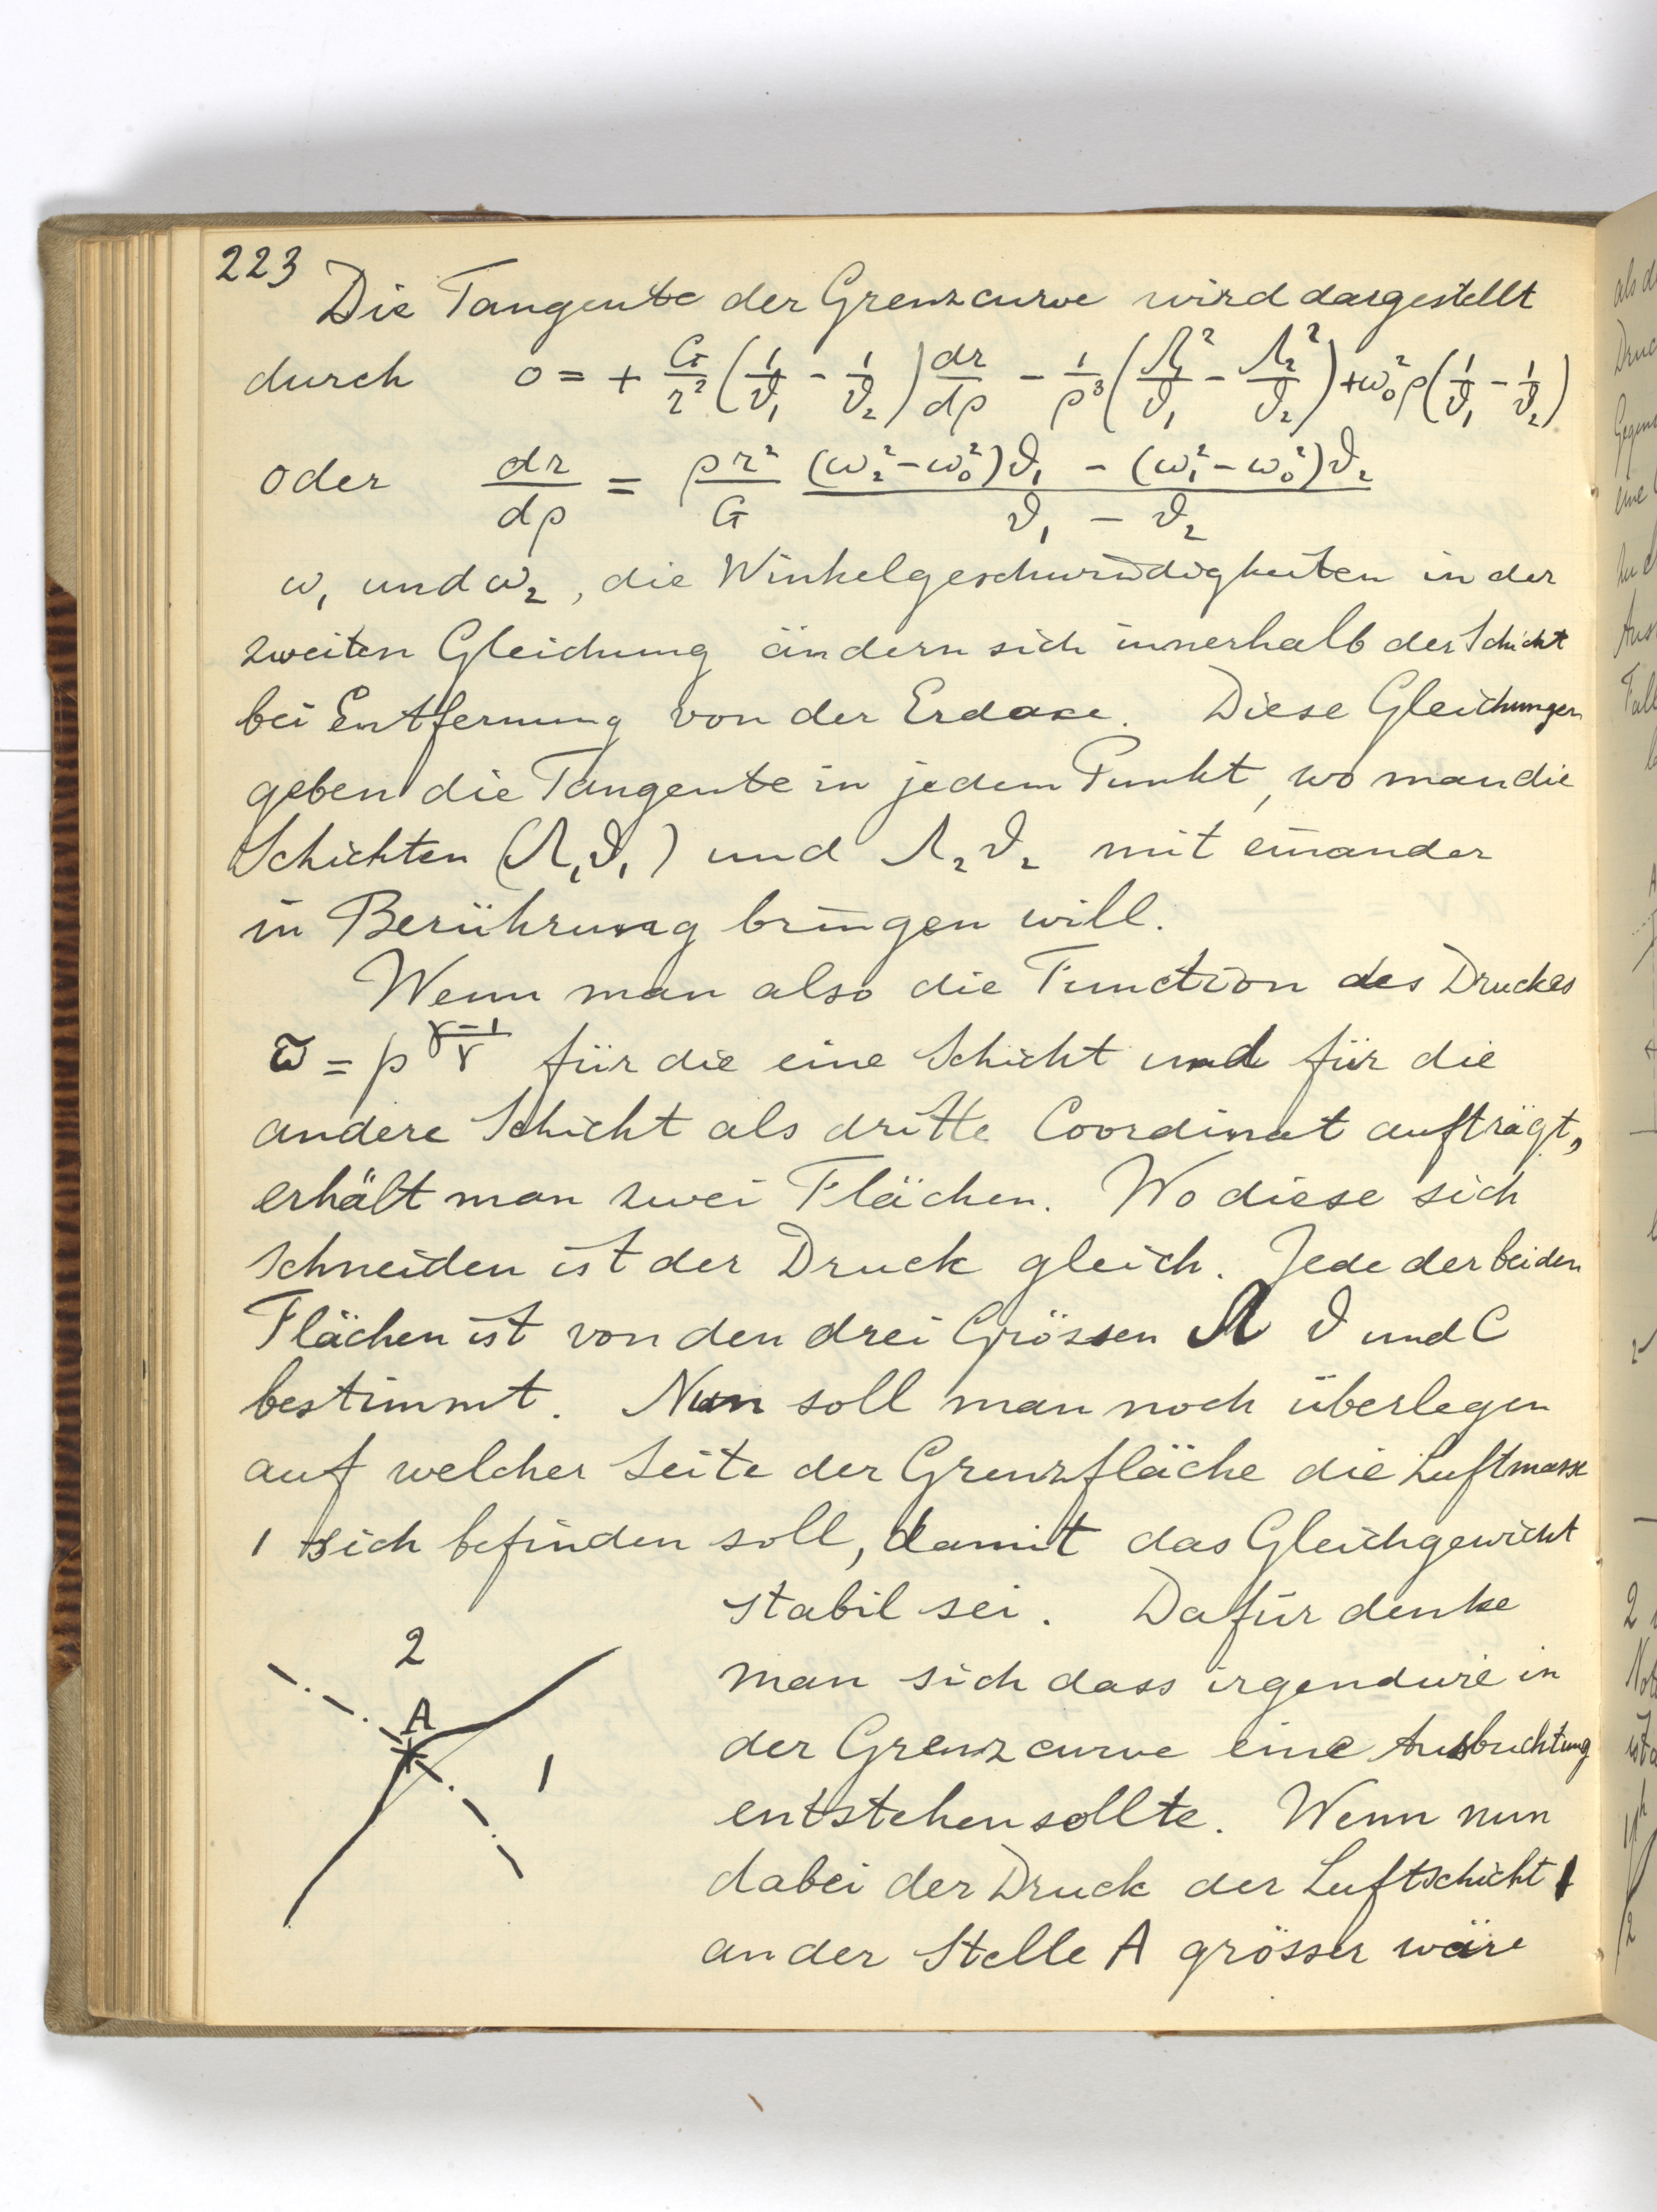 223
Die Tangente der Grenzcurve wird dargestellt
durch 0 = + G/r² (1/ϑ₁ - 1/ϑ₂) dr/dρ - 1/ρ³ (Λ₁²/ϑ₁ - Λ₂²/ϑ₂) + ω₀² ρ (1/ϑ₁ - 1/ϑ₂)
oder dr/dρ = ρr²/G ((ω₂² - ω₀²)ϑ₁ - (ω₁² - ω₀²)ϑ₂)/(ϑ₁ - ϑ₂)
ω₁ und ω₂, die Winkelgeschwindigkeiten in der
zweiten Gleichung ändern sich innerhalb der Schicht
bei Entfernung von der Erdaxe. Diese Gleichungen
geben die Tangente in jedem Punkt, wo man die
Schichten (Λ₁ϑ₁) und Λ₂ϑ₂ mit einander
in Berührung bringen will.
Wenn man also die Function des Druckes
ϖ = p^((γ-1)/γ) für die eine Schicht und für die
andere Schicht als dritte Coordinat aufträgt,
erhält man zwei Flächen. Wo diese sich
schneiden ist der Druck gleich. Jede der beiden
Flächen ist von den drei Grössen Λ ϑ und C
bestimmt. Nun soll man noch überlegen
auf welcher Seite der Grenzfläche die Luftmasse
1 sich befinden soll, damit das Gleichgewicht
stabil sei. Dafür denke
man sich dass irgendwie in
der Grenzcurve eine Ausbuchtung
entstehen sollte. Wenn nun
dabei der Druck der Luftschicht 1
an der Stelle A grösser wäre
2
A
1